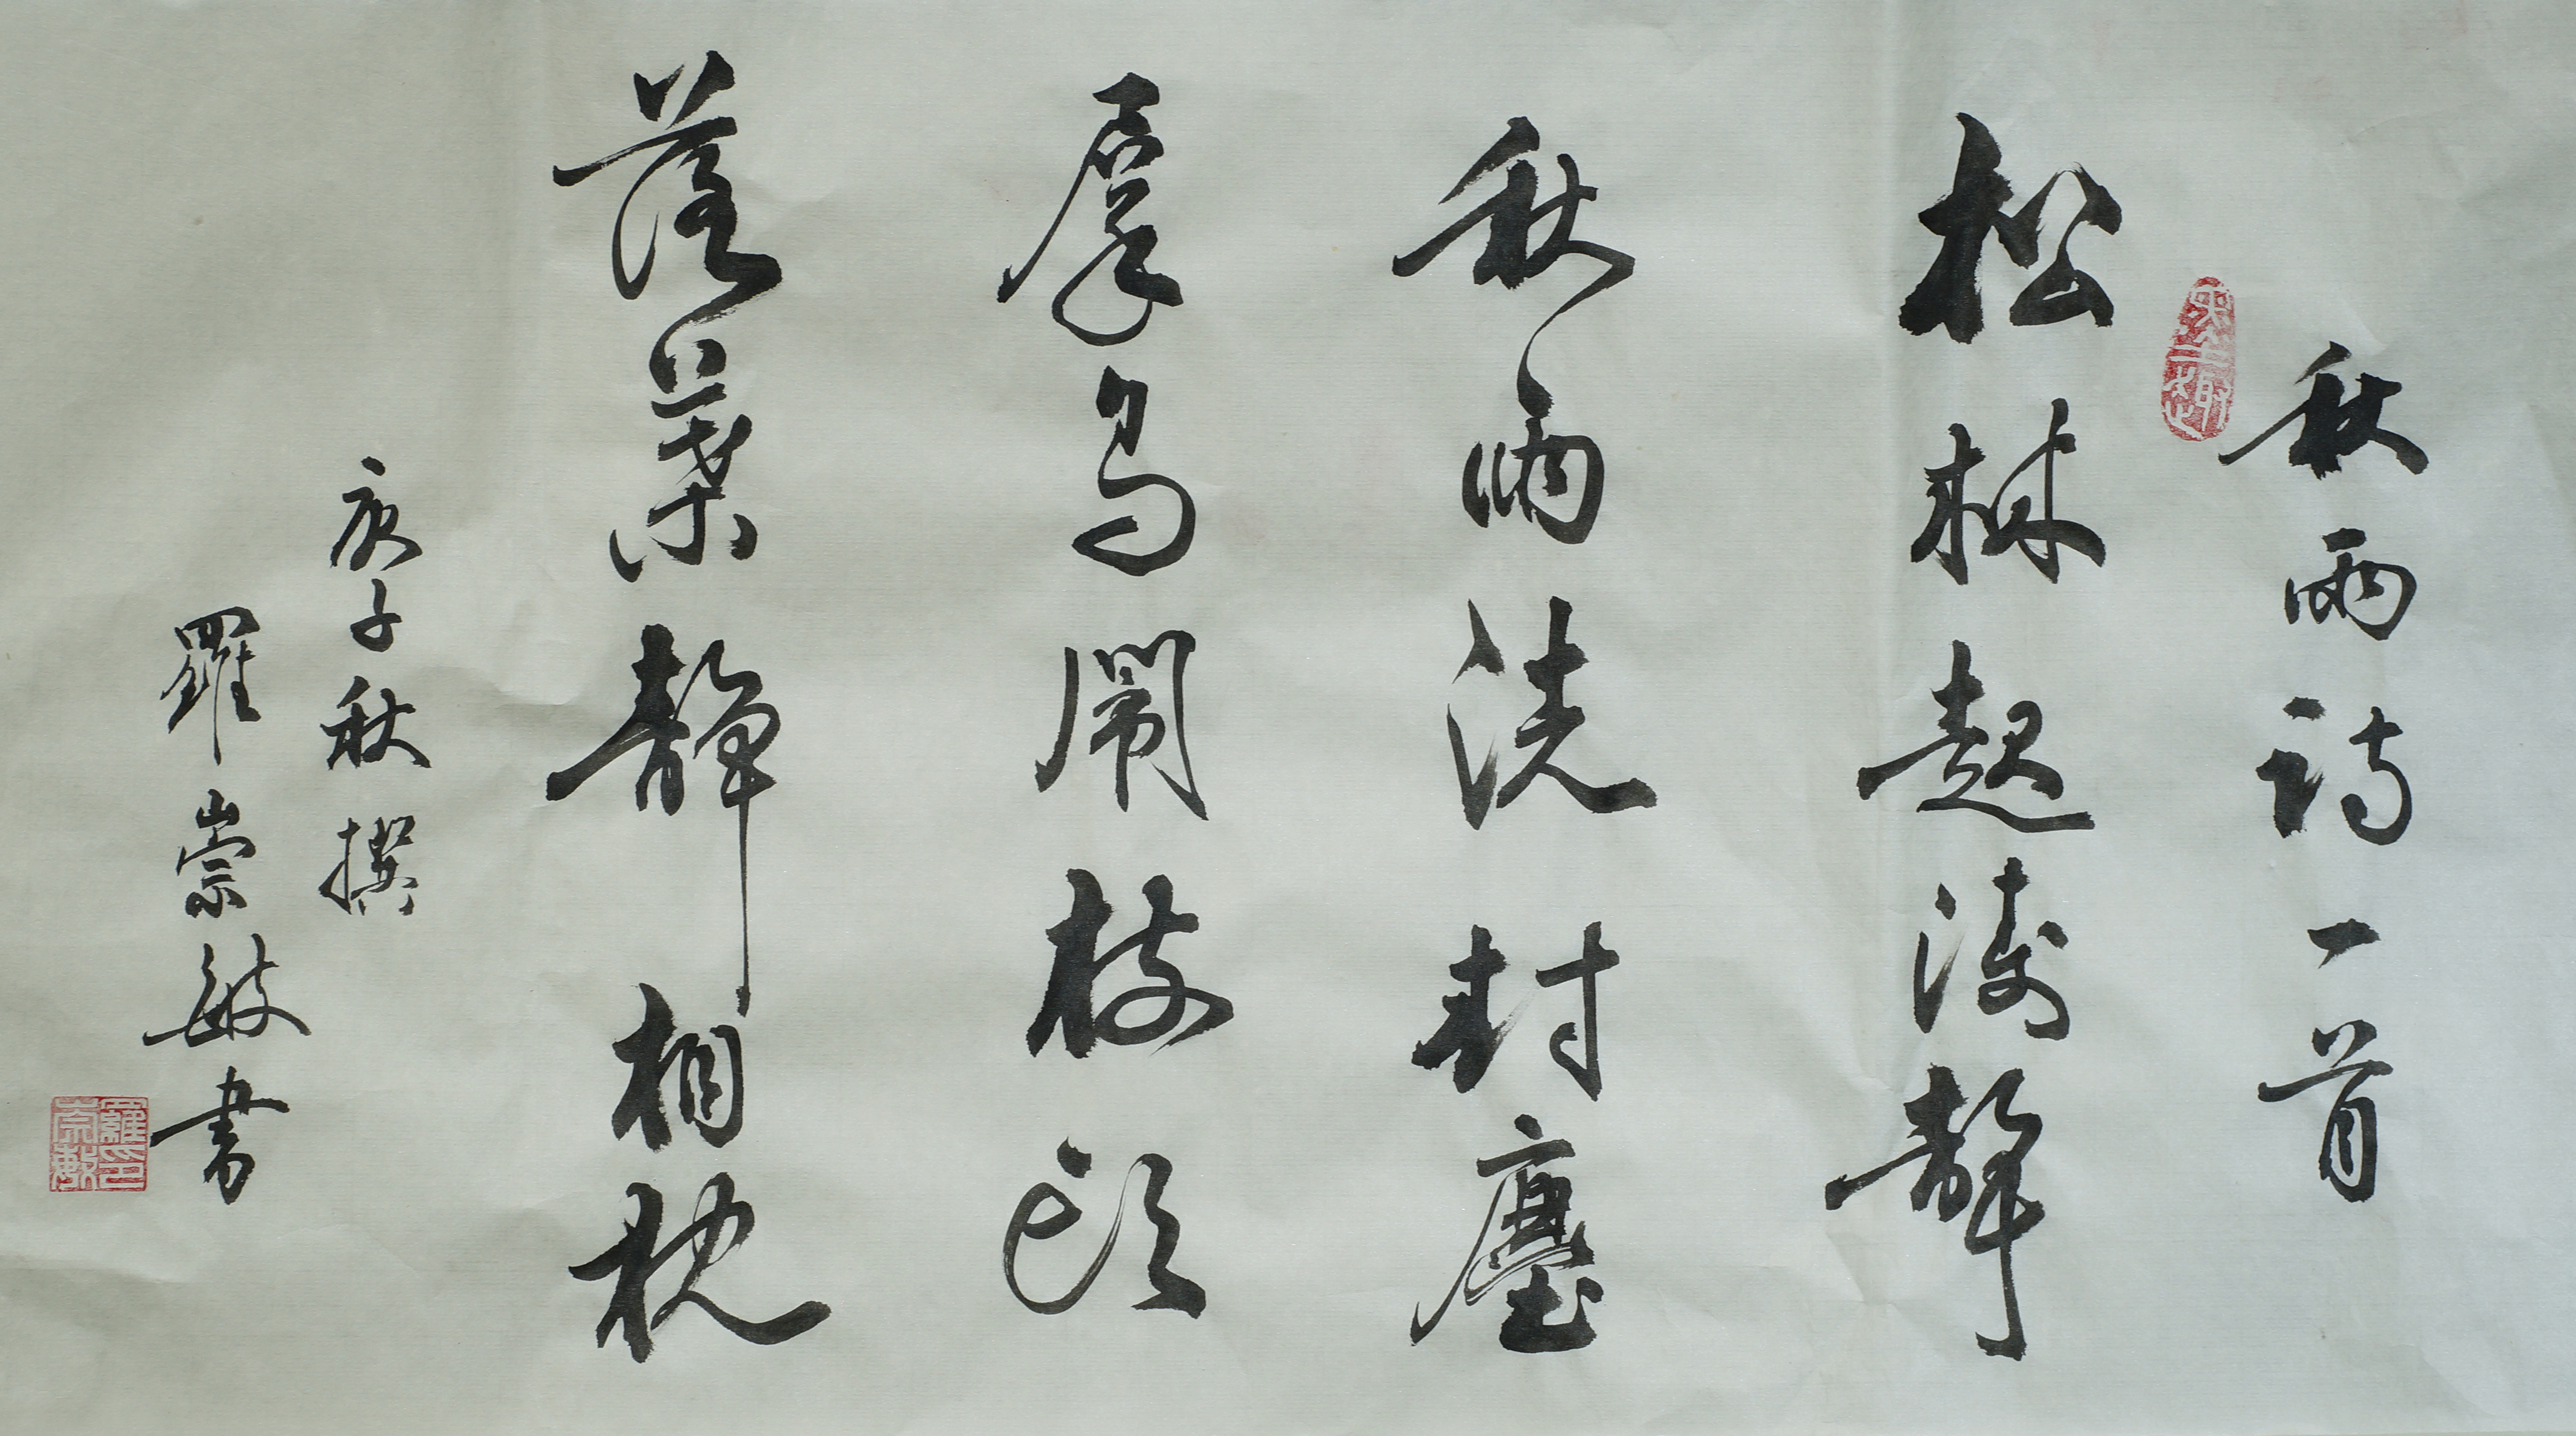 秋雨詩一首
松林起濤聲
秋雨洗封塵
群鳥鬧枝頭
落葉靜相枕
庚子秋撰
羅崇敏書
羅崇敏印